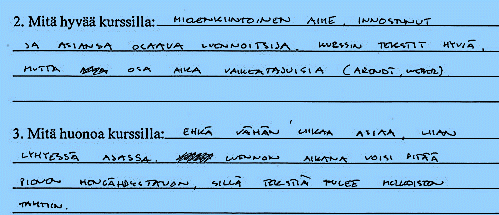 2. Mitä hyvää kurssilla: MIELENKIINTOINEN AIHE. INNOSTUNUT
JA ASIANSA OSAAVA LUENNOITSIJA. KURSSIN TEKSTIT HYVIÄ,
MUTTA OSA AIKA VAIKEATAJUISIA (ARENDT, WEBER)
3. Mitä huonoa kurssilla: EHKÄ VÄHÄN LIIKAA ASIAA, LIIAN
LYHYESSÄ AJASSA. LUENNON AIKANA VOISI PITÄÄ
PIENEN HENGÄHDYSTAUON, SILLÄ TEKSTIÄ TULEE MELKOISEEN
TAHTIIN.